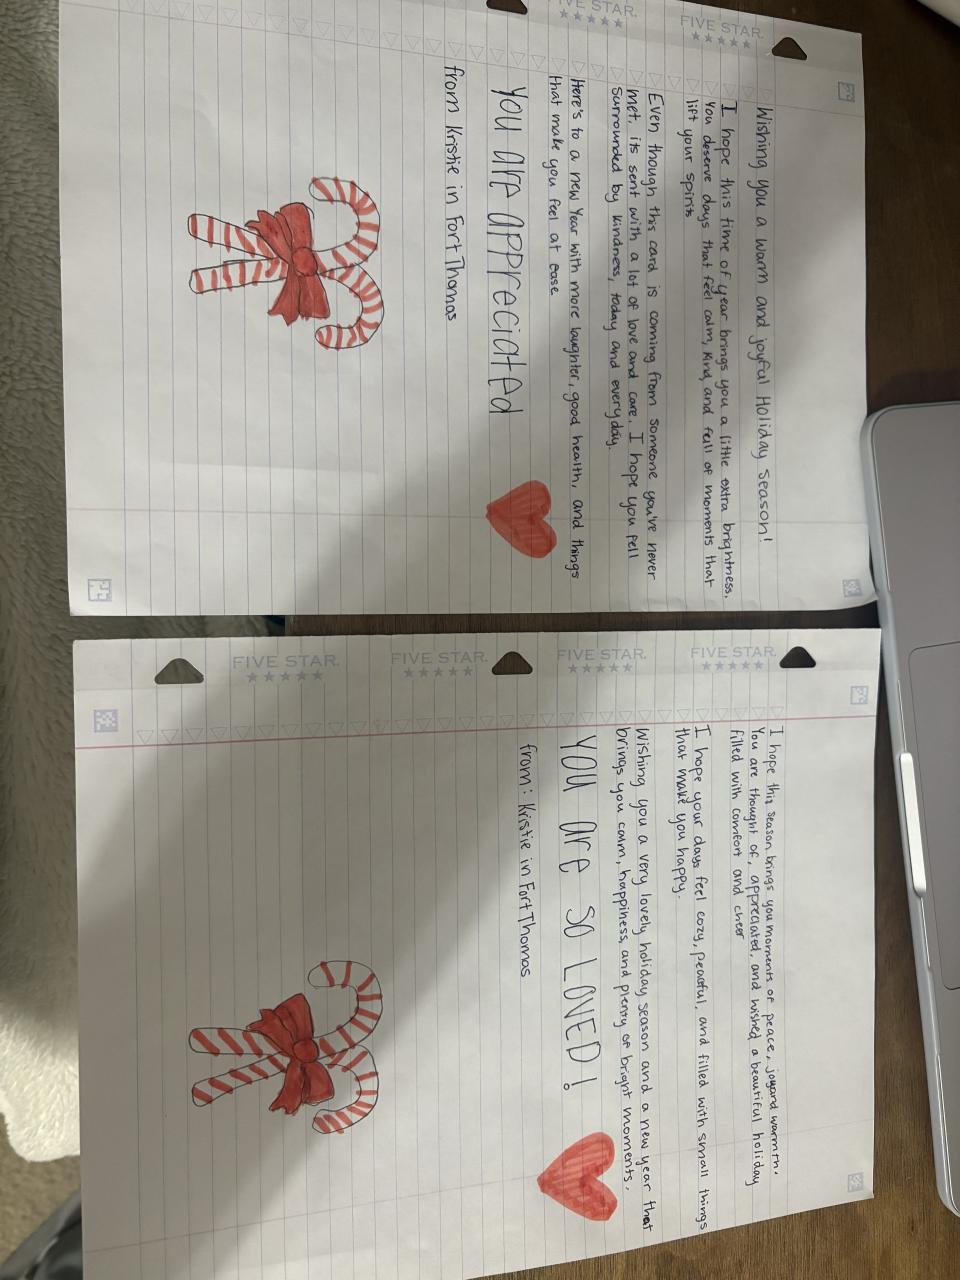 FIVE STAR.
FIVE STAR.
Wishing you a warm and joyful Holiday season!
I hope this time of year brings you a little extra brightness.
You deserve days that feel calm, kind, and full of moments that
lift your spirits
Even though this card is coming from someone you've never
met, its sent with a lot of love and care. I hope you fell
surrounded by kindness, today and everyday.
Here's to a new Year with more laughter, good health, and things
that make you feel at ease
YOU ARE APPRECIATED
from Kristie in Fort Thomas
FIVE STAR.
FIVE STAR.
FIVE STAR.
FIVE STAR.
I hope this season brings you moments of peace, joy and warmth.
You are thought of, appreciated, and wished a beautiful holiday
filled with comfort and cheer
I hope your days feel cozy, peaceful, and filled with small things
that make you happy.
Wishing you a very lovely holiday season and a new year that
brings you calm, happiness, and plenty of bright moments.
YOU are SO LOVED!
from: Kristie in Fort Thomas